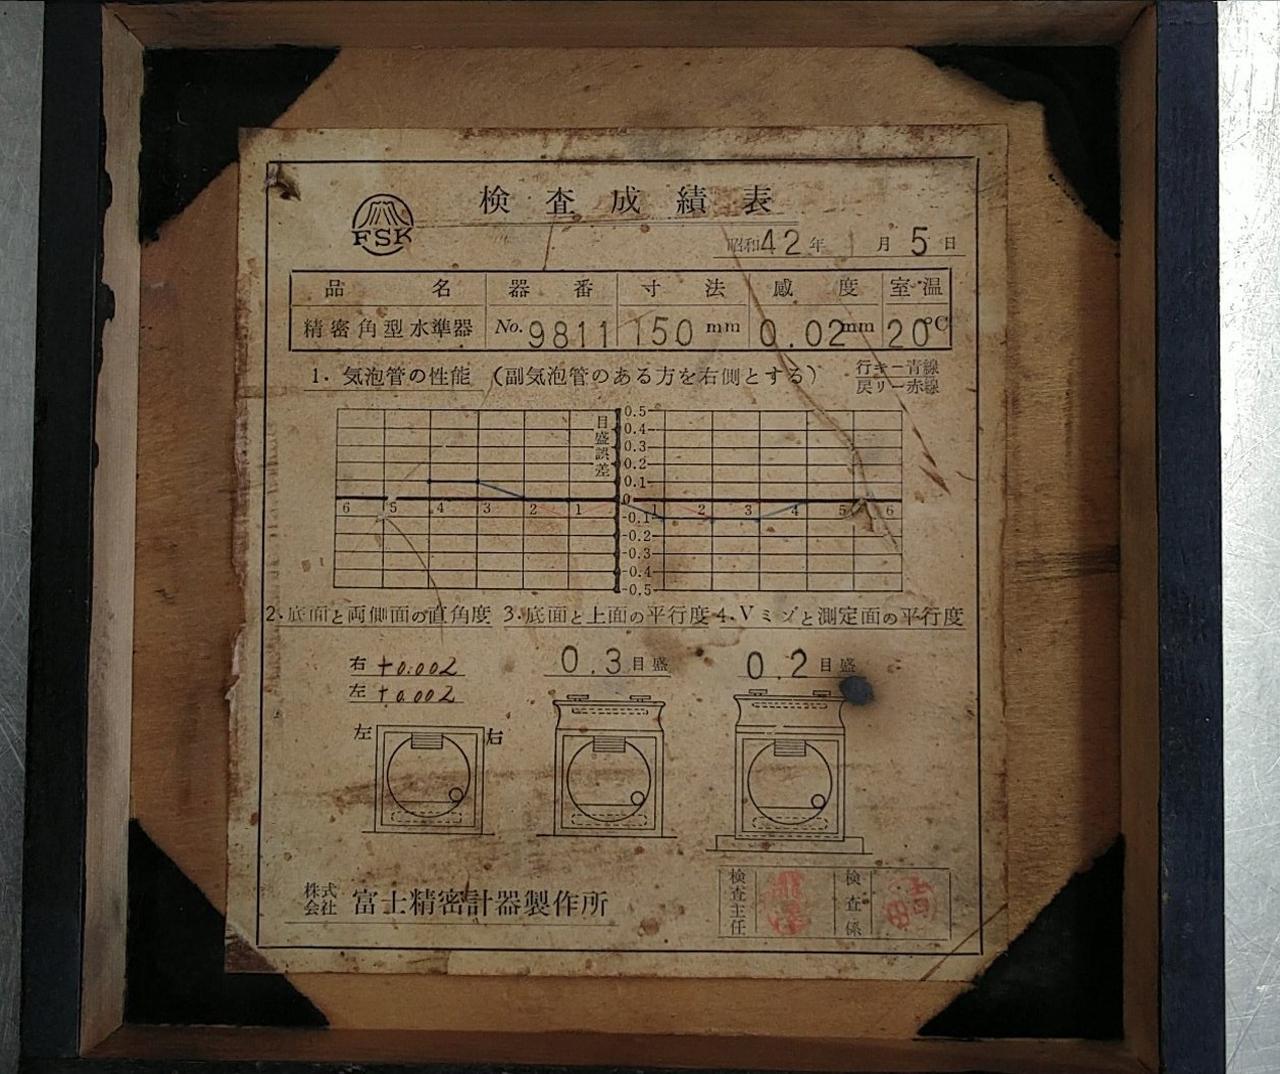 検査成績表
FSK
昭和42年 月5日
品名 器番 寸法 感度 室温
精密角型水準器 No.9811 150mm 0.02mm 20°C
1. 気泡管の性能 (副気泡管のある方を右側とする)
行キー青線
戻リー赤線
目盛誤差
0.5
0.4
0.3
0.2
0.1
6 5 4 3 2 1 0 1 2 3 4 5 6
-0.1
-0.2
-0.3
-0.4
-0.5
2.底面と両側面の直角度 3.底面と上面の平行度 4.Vミゾと測定面の平行度
右 +0.002
左 +0.002
0.3目盛
0.2目盛
左 右
株式会社 富士精密計器製作所
検査主任 検査係